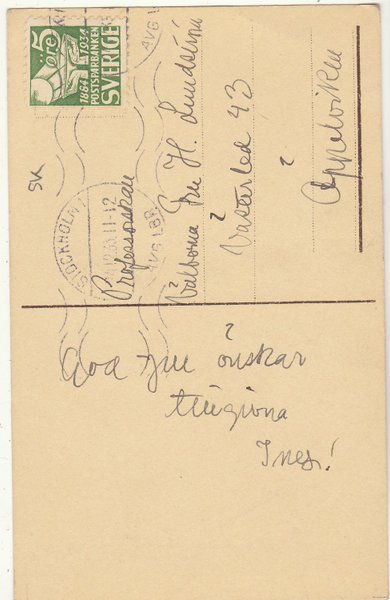 5
öre
1884 1934
POSTSPARBANKEN
SVERIGE
AVG L
SK
STOCKHOLM 1
12.35.11-12
AVG LBR
Professorskan
Välborna Fru H. Lundström
Västerled 43
Appelviken
God Jul önskar
tillgivna
Ines!